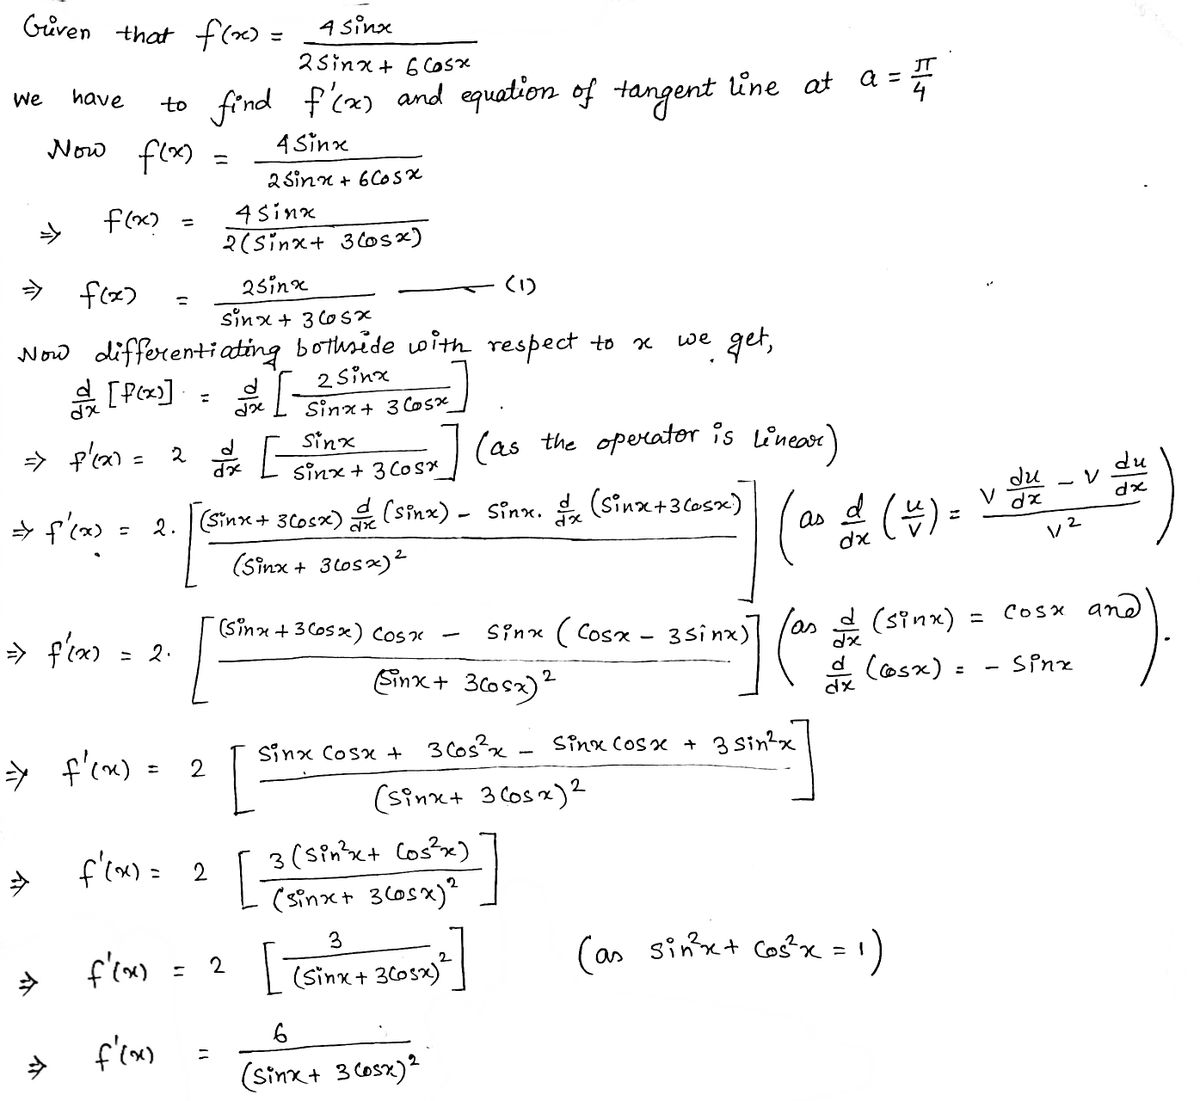 Given that f(x) = 4 sinx / 2 sinx + 6 cosx
we have to find f'(x) and equation of tangent line at a = π/4
Now f(x) = 4 sinx / 2 sinx + 6 cosx
⇒ f(x) = 4 sinx / 2(sinx + 3 cosx)
⇒ f(x) = 2 sinx / sinx + 3 cosx ——— (1)
Now differentiating bothside with respect to x we get,
d/dx [f(x)] = d/dx [2 sinx / sinx + 3 cosx]
⇒ f'(x) = 2 d/dx [sinx / sinx + 3 cosx] (as the operator is linear)
⇒ f'(x) = 2. [(sinx + 3cosx) d/dx (sinx) - sinx. d/dx (sinx+3cosx) / (sinx + 3cosx)²] (as d/dx (u/v) = v du/dx - v du/dx / v²)
⇒ f'(x) = 2. [(sinx + 3cosx) cosx - sinx (cosx - 3sinx) / (sinx + 3cosx)²] (as d/dx (sinx) = cosx and d/dx (cosx) = - sinx).
⇒ f'(x) = 2 [sinx cosx + 3cos²x - sinx cosx + 3 sin²x / (sinx + 3 cosx)²]
⇒ f'(x) = 2 [3 (sin²x + cos²x) / (sinx + 3cosx)²]
⇒ f'(x) = 2 [3 / (sinx + 3cosx)²] (as sin²x + cos²x = 1)
⇒ f'(x) = 6 / (sinx + 3cosx)²